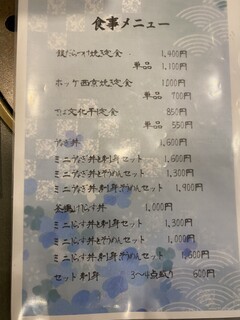 食事メニュー
銀だらけ焼き定食 1,400円
単品 1,100円
ホッケ西京焼き定食 1000円
単品 700円
さば文化干定食 850円
単品 550円
うなぎ丼 1,600円
ミニうなぎ丼と刺身セット 1,600円
ミニうなぎ丼とそうめんセット 1,300円
ミニうなぎ丼刺身そうめんセット 1,900円
釜揚げしらす丼 1,000円
ミニしらす丼と刺身セット 1,300円
ミニしらす丼とそうめんセット 1,000円
ミニしらす丼刺身そうめんセット 1,600円
セット刺身 3〜4点盛り 600円